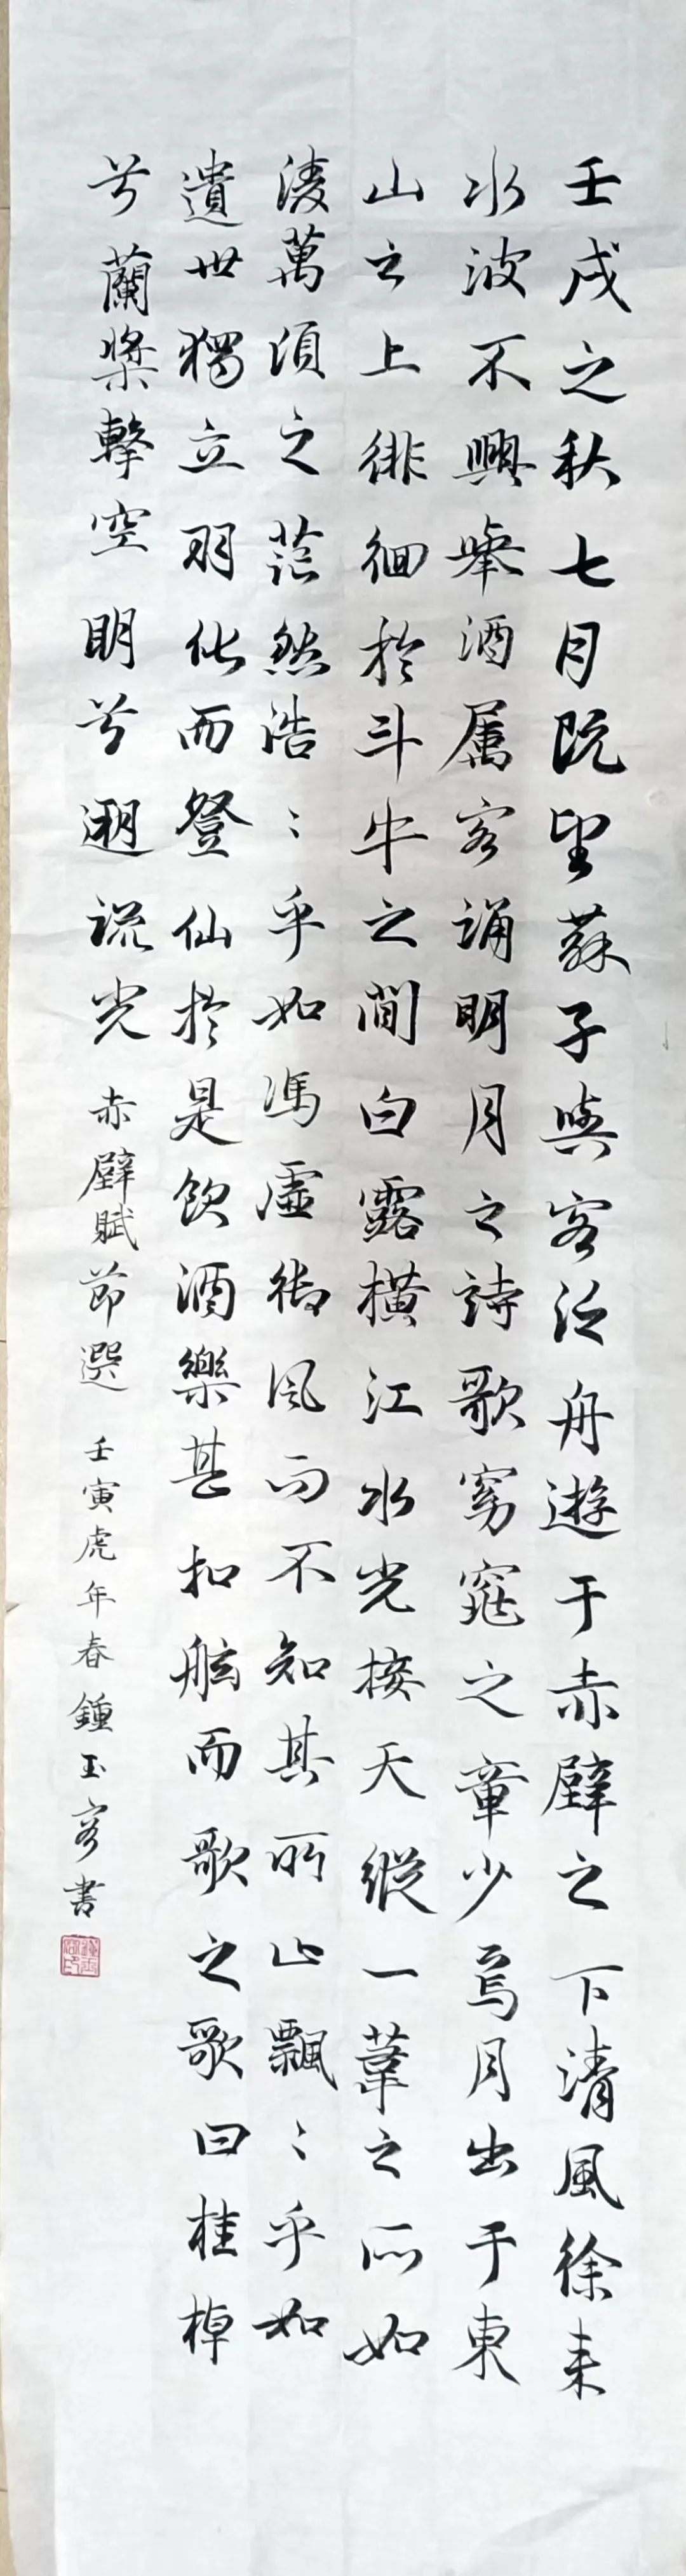 壬戌之秋七月既望蘇子與客泛舟遊于赤壁之下清風徐来
水波不興舉酒属客誦明月之詩歌窈窕之章少焉月出于東
山之上徘徊於斗牛之間白露橫江水光接天縱一葦之所如
淩萬頃之茫然浩〻乎如馮虛御风而不知其所止飄〻乎如
遺世獨立羽化而登仙於是飲酒樂甚扣舷而歌之歌曰桂棹
兮蘭槳擊空明兮溯流光 赤壁賦節選 壬寅虎年春鍾玉容書